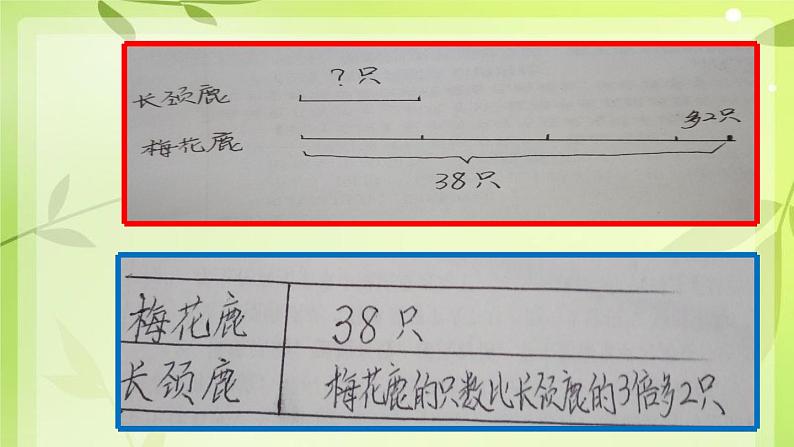 ?只
长颈鹿
多2只
梅花鹿
38只
梅花鹿 38只
长颈鹿 梅花鹿的只数比长颈鹿的3倍多2只